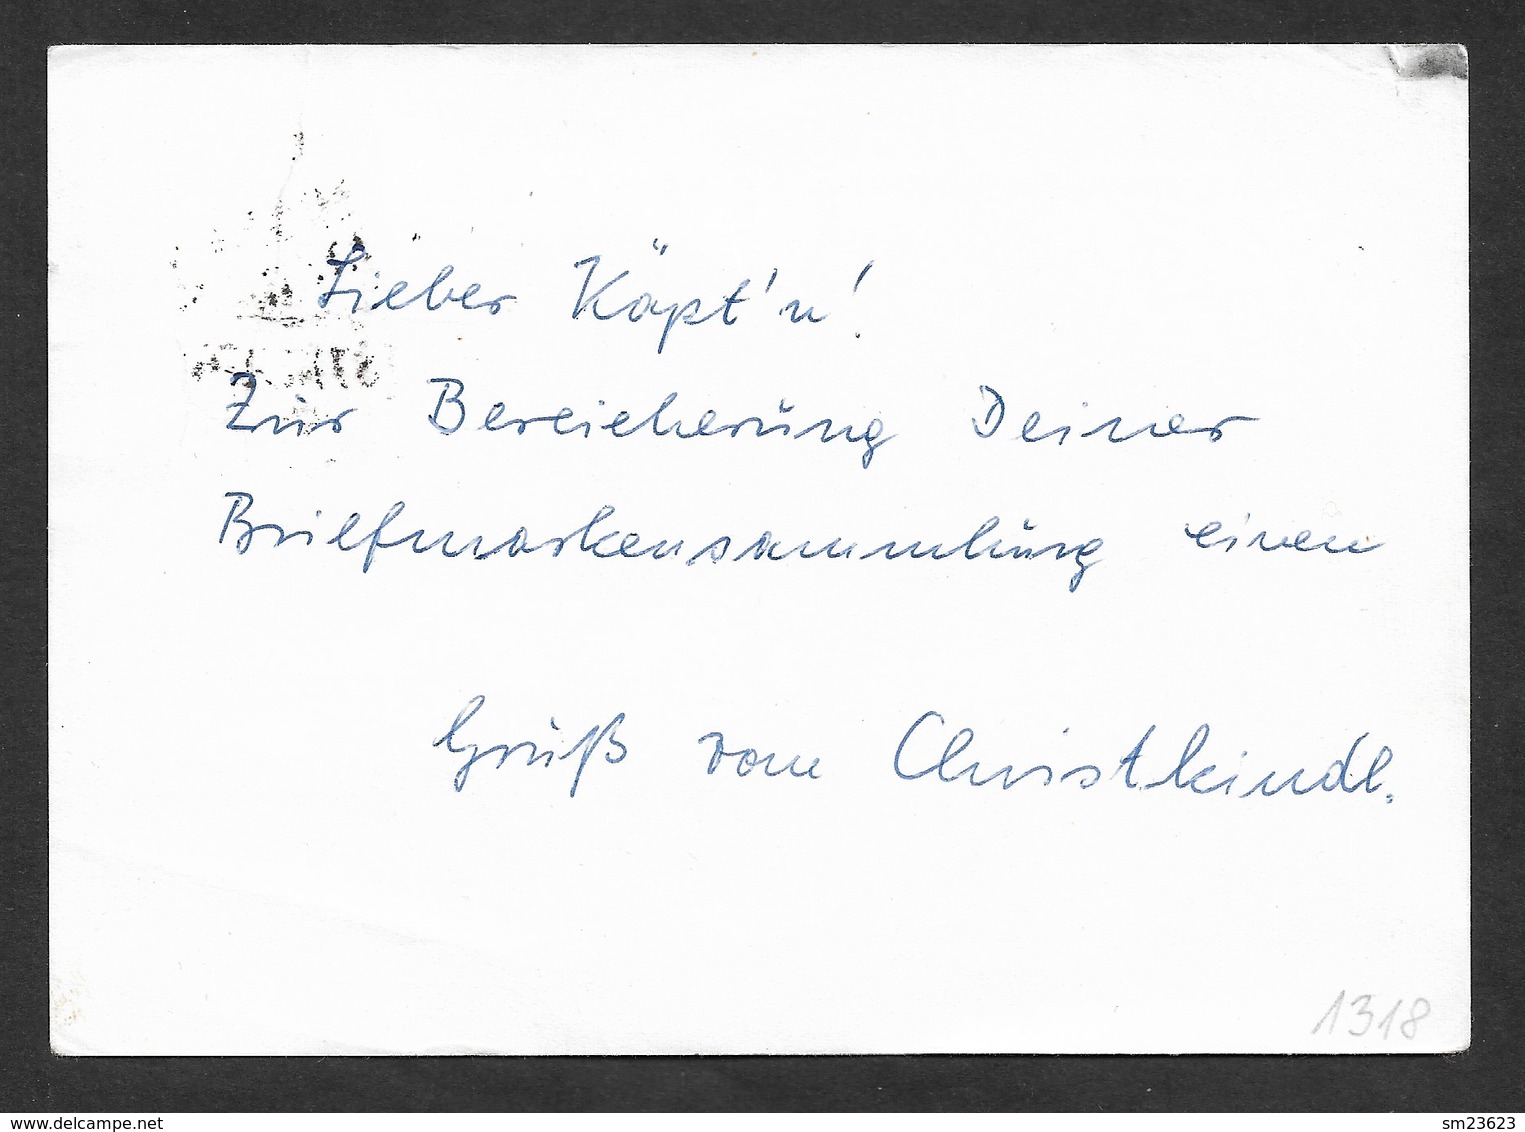 Lieber Käpt'n!
Zur Bereicherung Deiner
Briefmarkensammlung einen
Gruß vom Christkindl.
1318
www.delcampe.net
sm23623